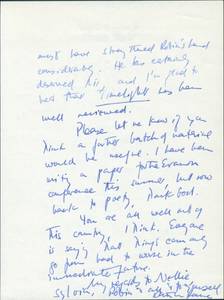 must have strengthened Robin's hand
considerably. He has certainly
deserved it, and I'm glad to
hear that Limelight has been
well reviewed.
Please let me know if you
think a further batch of
would be useful. I have been
writing a paper for the
conference this summer, but now
back to poetry, thank God.
You are all well out of
this country, I think. Everyone
is saying that things can only
go from bad to worse in the
immediate future.
My regards to Nellie
Robin &